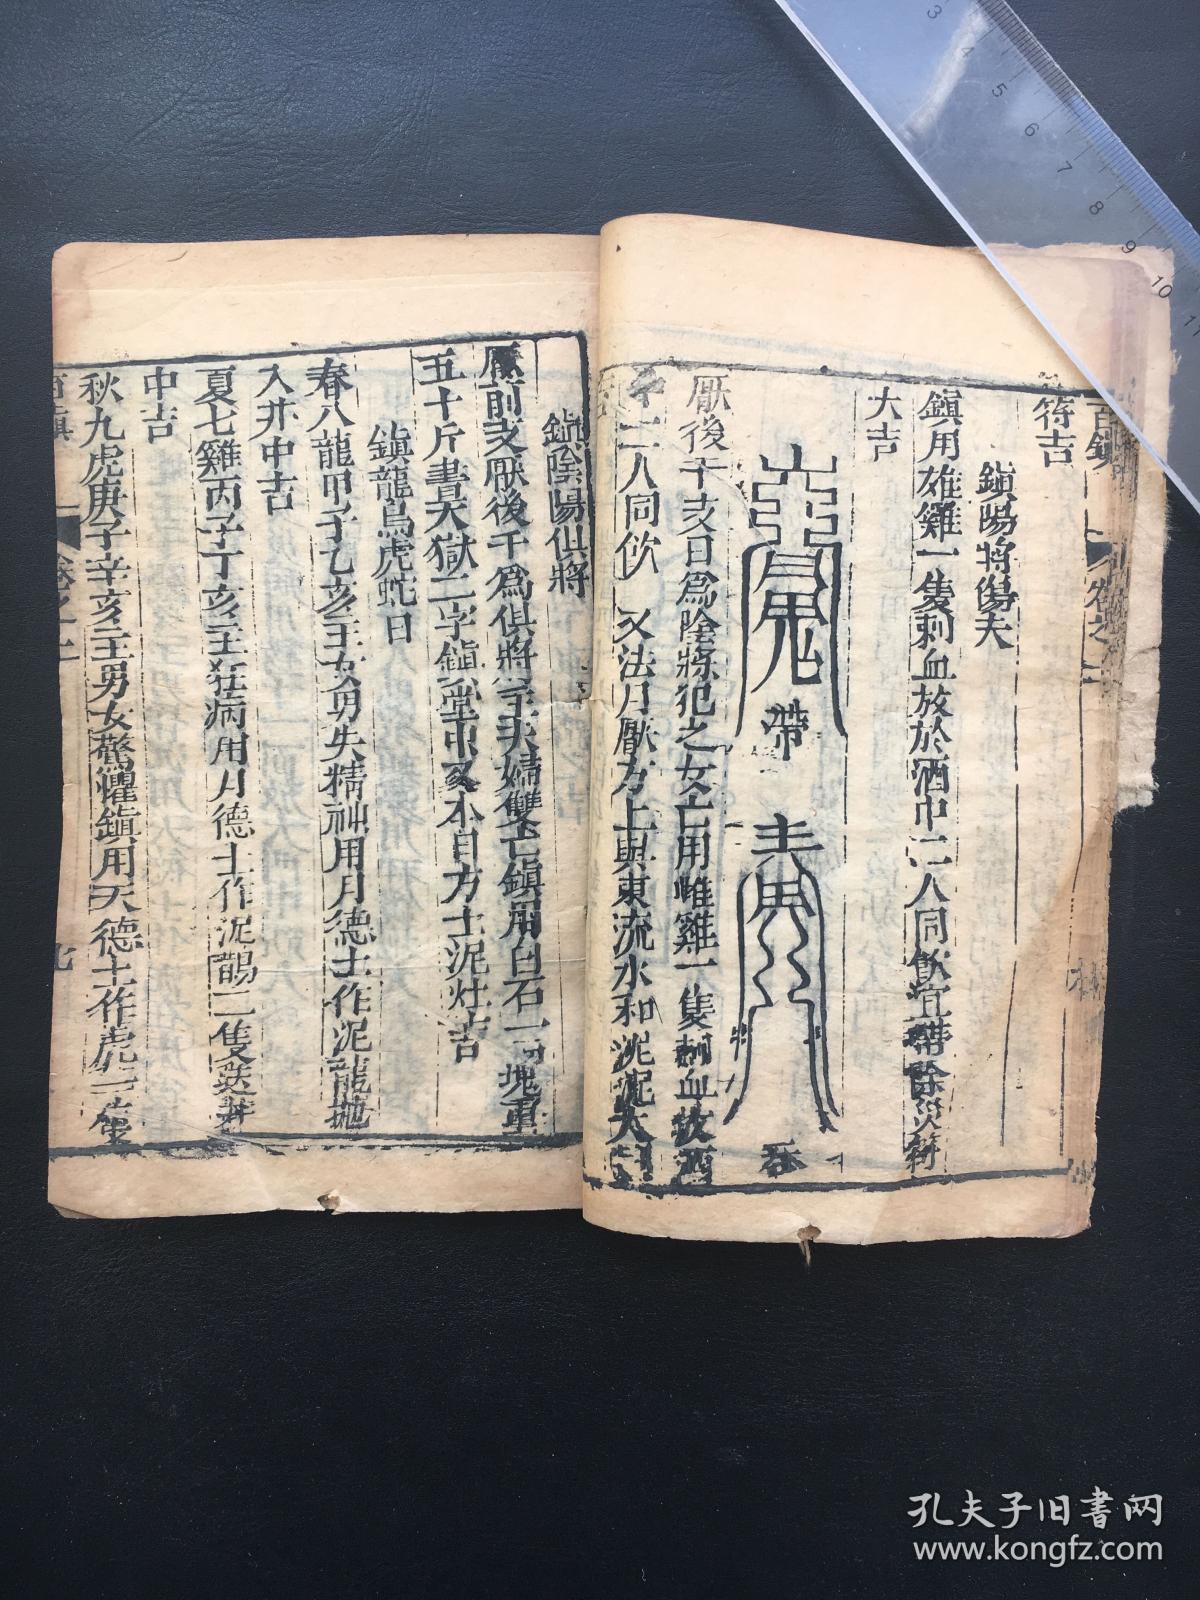 百鎮
卷之
符吉
鎮陽將傷夫
鎮用雄雞一隻刺血放於酒中二人同飲宜帶除災符
大吉
帶
吞
厭後干支日爲陰將犯之女亡用雌雞一隻刺血放酒
二人同飲 又法月厭方上與東流水和泥泥大
鎮陰陽俱將
厭前支厭後干爲俱將主夫婦雙亡鎮用白石一塊重
五十斤書天獄二字鎮堂中及本日方土泥灶吉
鎮龍烏虎蛇日
春八龍甲子乙亥主女男失精神用月德土作泥龍抛
入井中吉
夏七雞丙子丁亥主狂病用月德土作泥鵲二隻送井
中吉
秋九虎庚子辛亥主男女驚懼鎮用天德土作虎一隻
百鎮
卷之上
七
3 4 5 6 7 8 9 10
孔夫子旧书网
www.kongfz.com